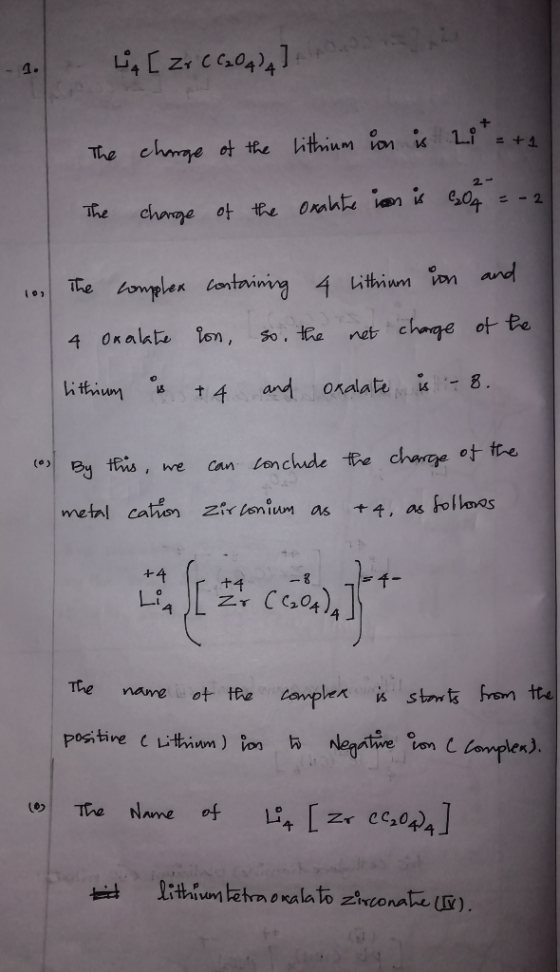 1. Li4 [ Zr (C2O4)4]
The charge of the lithium ion is Li+ = +1
The charge of the oxalate ion is C2O4 2- = -2
(0) The complex containing 4 Lithium ion and
4 oxalate ion, so. the net charge of the
lithium is +4 and oxalate is - 8.
(0) By this, we can conclude the charge of the
metal cation zirconium as +4, as follows
+4 +4 -8
Li4 {[ Zr (C2O4)4]} = 4-
The name of the complex is starts from the
positive (Lithium) ion to Negative ion (Complex).
(0) The Name of Li4 [ Zr (C2O4)4]
lithiumtetraoxalato zirconate (IV).